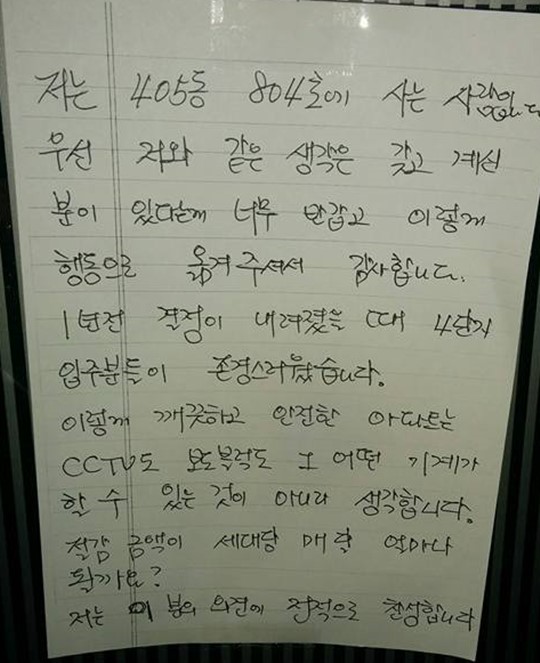 저는 405동 804호에 사는 사람입니다
우선 저와 같은 생각은 갖고 계신
분이 있다는게 너무 반갑고 이렇게
행동으로 옮겨주셔서 감사합니다.
1년전 결정이 내려졌을 때 4단지
입주분들이 존경스러웠습니다.
이렇게 깨끗하고 안전한 아파트는
CCTV도 보도블럭도 그 어떤 기계가
할 수 있는 것이 아니라 생각합니다.
절감 금액이 세대당 매달 얼마나
될까요?
저는 이 분의 의견에 전적으로 찬성합니다